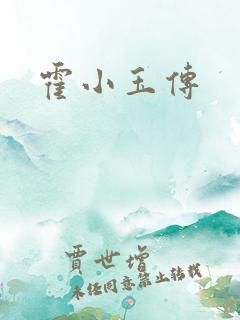 霍小玉傳
賈世增
未經同意禁止轉載